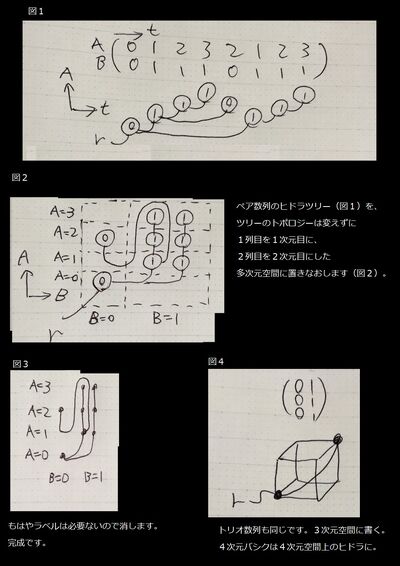 図１
t
A ( 0 1 2 3 2 1 2 3 )
B ( 0 1 1 1 0 1 1 1 )
A
t
0 1 1 1 0 1 1 1
r
図２
A=3
A=2
A=1
A=0
A
B
0 0 1 1 1 1 1 1
r
B=0
B=1
ペア数列のヒドラツリー（図１）を、
ツリーのトポロジーは変えずに
１列目を１次元目に、
２列目を２次元目にした
多次元空間に置きなおします（図２）。
図３
A=3
A=2
A=1
A=0
B=0 B=1
もはやラベルは必要ないので消します。
完成です。
図４
0 1
0 1
0 1
r
トリオ数列も同じです。３次元空間に書く。
４次元バシクは４次元空間上のヒドラに。